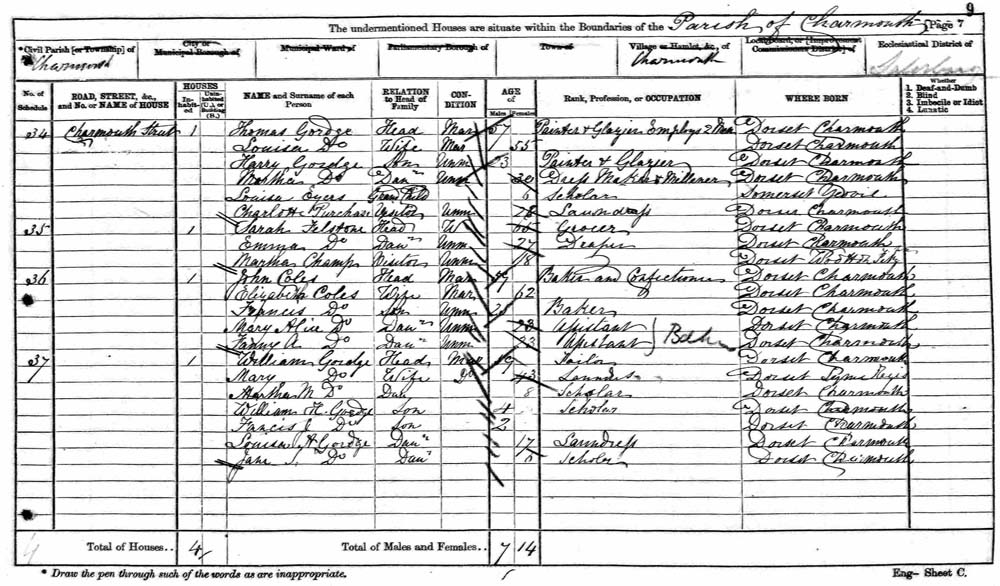 9
The undermentioned Houses are situate within the Boundaries of the Parish of Charmouth Page 7
* Civil Parish [or Township] of Charmouth
City or Municipal Borough of
Municipal Ward of
Parliamentary Borough of
Town of
Village or Hamlet, &c., of Charmouth
Local Board, or [Improvement Commissioners District] of
Ecclesiastical District of
No. of Schedule
ROAD, STREET, &c., and No. or NAME of HOUSE
HOUSES
Inhabited
Uninhabited (U.), or Building (B.)
NAME and Surname of each Person
RELATION to Head of Family
CONDITION
AGE of
Males
Females
Rank, Profession, or OCCUPATION
WHERE BORN
Whether
1. Deaf-and-Dumb
2. Blind
3. Imbecile or Idiot
4. Lunatic
34 Charmouth Street 1 Thomas Gordge Head Mar 57 Painter & Glazier Employs 2 Men Dorset Charmouth
Louisa Do Wife Mar 55 Dorset Charmouth
Harry Gordge Son Unm 23 Painter & Glazier Dorset Charmouth
Martha Do Daur Unm 20 Dress Maker & Milliner Dorset Charmouth
Louisa Eyers Grand Child 6 Scholar Somerset Yeovil
Charlotte Purchase Visitor Unm 28 Laundress Dorset Charmouth
35 1 Sarah Felstone Head W 66 Grocer Dorset Charmouth
Emma Do Daur Unm 27 Draper Dorset Charmouth
Martha Champ Visitor Unm 18 Dorset
36 1 John Coles Head Mar 49 Baker and Confectioner Dorset Charmouth
Elizabeth Coles Wife Mar 62 Dorset Charmouth
Francis Do Son Unm 25 Baker Dorset Charmouth
Mary Alice Do Daur Unm 28 Assistant Dorset Charmouth
Fanny A. Do Daur Unm 23 Assistant Dorset Charmouth
37 1 William Gordge Head Mar 49 Tailor Dorset Charmouth
Mary Do Wife Do 43 Laundress Dorset Lyme Regis
Martha M Do Daur 8 Scholar Dorset Charmouth
William H. Gordge Son 4 Scholar Dorset Charmouth
Francis J Do Son 2 Dorset Charmouth
Louisa A Gordge Daur 17 Laundress Dorset Charmouth
Jane Do Daur Scholar Dorset Charmouth
Total of Houses.. 4
Total of Males and Females.. 7 14
* Draw the pen through such of the words as are inappropriate.
Eng- Sheet C.